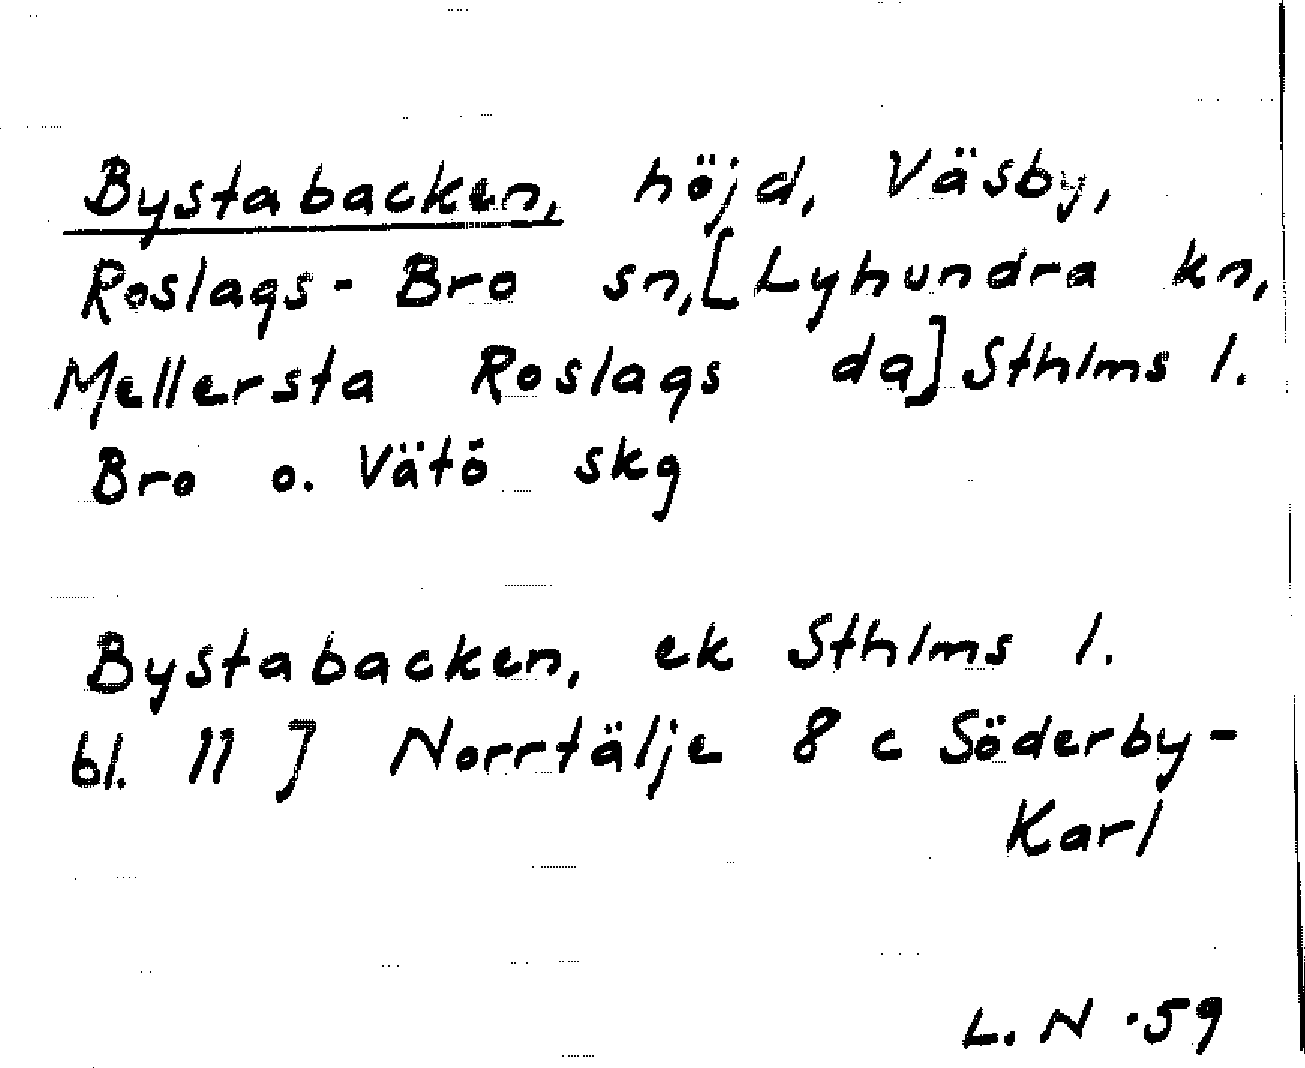 Bystabacken, höjd, Väsby,
Roslags-Bro sn,[Lyhundra kn,
Mellersta Roslags da] Sthlms l.
Bro o. Vätö skg
Bystabacken, ek Sthlms l.
bl. 11 J Norrtälje 8 c Söderby-
Karl
L. N -59